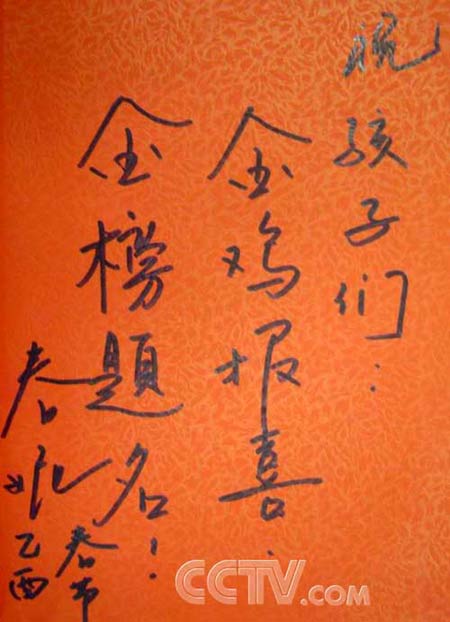 祝孩子们：
金鸡报喜.
金榜題名！
春妮
乙酉
春节
CCTV.com